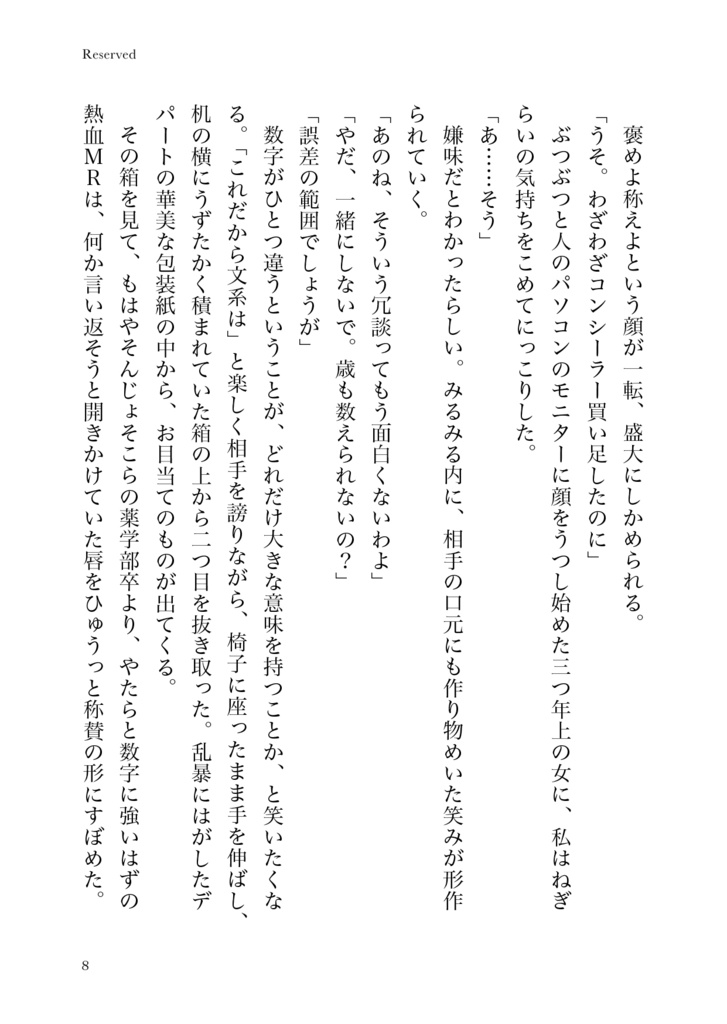 Reserved
　褒めよ称えよという顔が一転、盛大にしかめられる。
「うそ。わざわざコンシーラー買い足したのに」
　ぶつぶつと人のパソコンのモニターに顔をうつし始めた三つ年上の女に、私はねぎ
らいの気持ちをこめてにっこりした。
「あ……そう」
　嫌味だとわかったらしい。みるみる内に、相手の口元にも作り物めいた笑みが形作
られていく。
「あのね、そういう冗談ってもう面白くないわよ」
「やだ、一緒にしないで。歳も数えられないの？」
「誤差の範囲でしょうが」
　数字がひとつ違うということが、どれだけ大きな意味を持つことか、と笑いたくな
る。「これだから文系は」と楽しく相手を謗りながら、椅子に座ったまま手を伸ばし、
机の横にうずたかく積まれていた箱の上から二つ目を抜き取った。乱暴にはがしたデ
パートの華美な包装紙の中から、お目当てのものが出てくる。
　その箱を見て、もはやそんじょそこらの薬学部卒より、やたらと数字に強いはずの
熱血ＭＲは、何か言い返そうと開きかけていた唇をひゅうっと称賛の形にすぼめた。
8